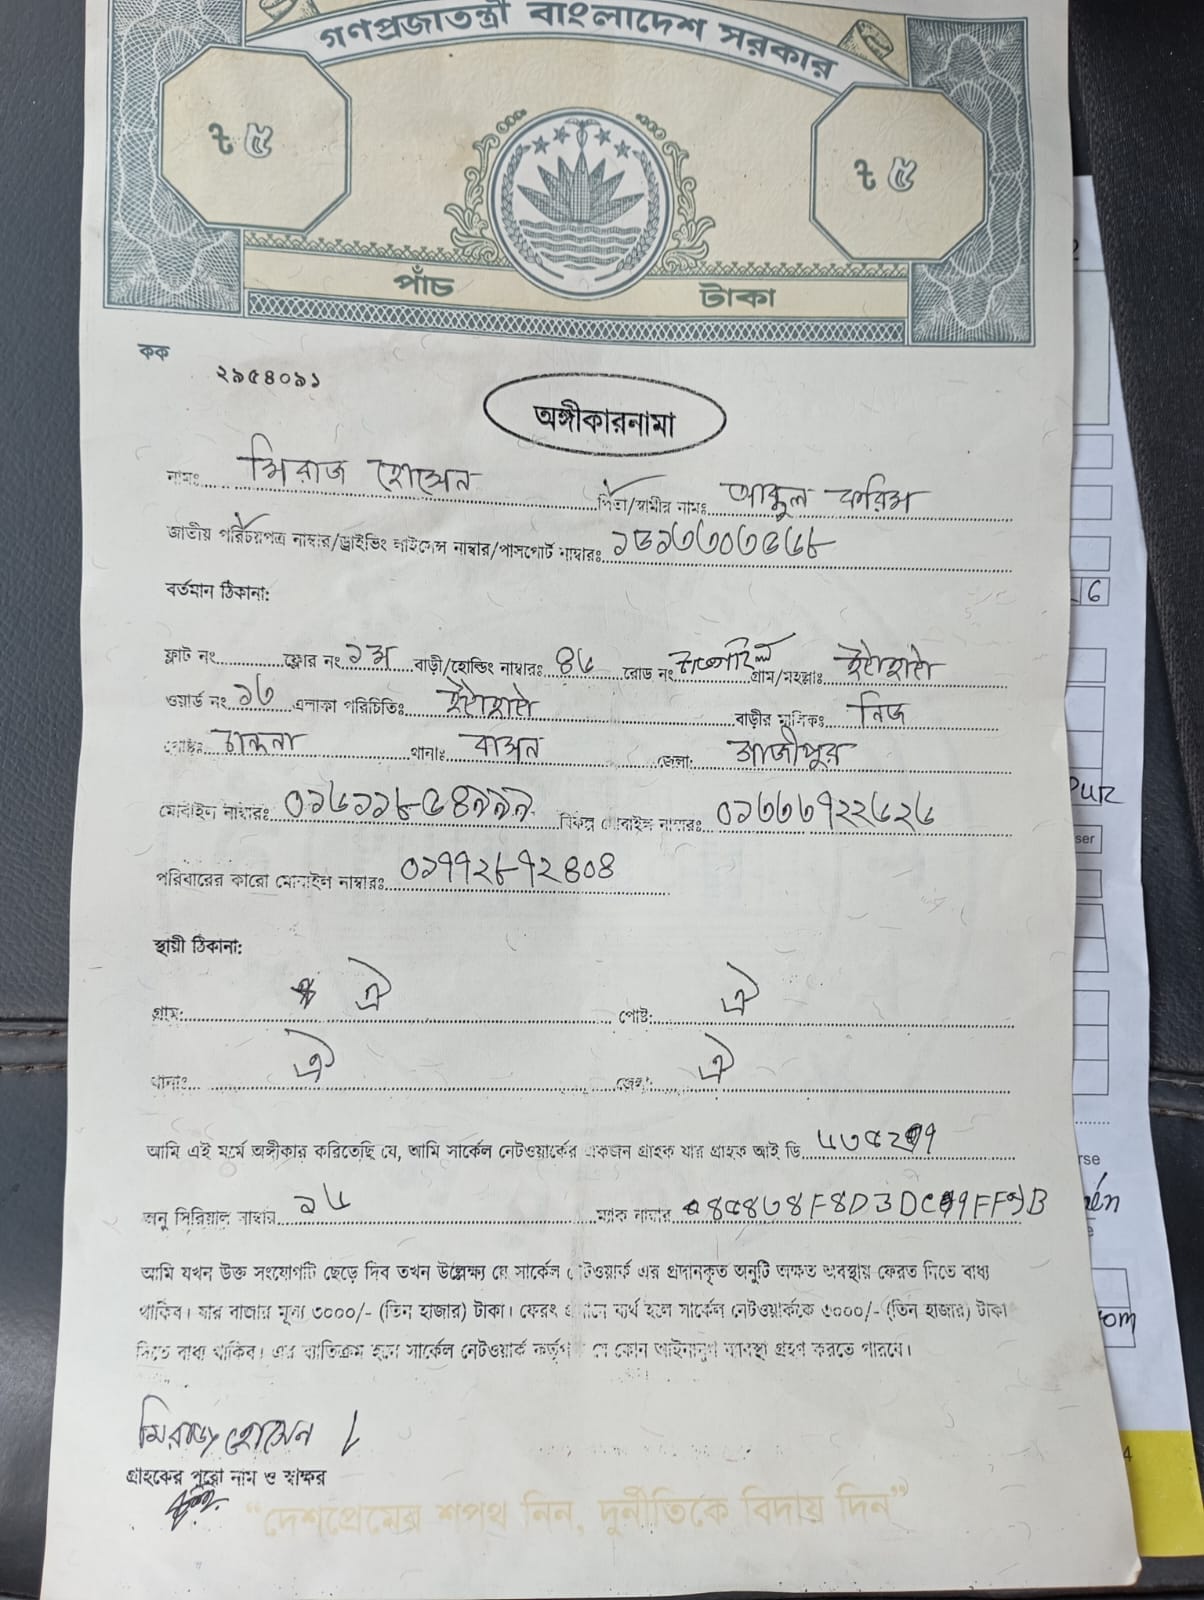 গণপ্রজাতন্ত্রী বাংলাদেশ সরকার
৳ ৫ ৳ ৫
পাঁচ টাকা
কক
২৯৫৪০৯১
অঙ্গীকারনামা
নামঃ মিরাজ হোসেন পিতা/স্বামীর নামঃ আব্দুল করিম
জাতীয় পরিচয়পত্র নাম্বার/ড্রাইভিং লাইসেন্স নাম্বার/পাসপোর্ট নাম্বারঃ
বর্তমান ঠিকানা:
ফ্লাট নং ফ্লোর নং ১ম বাড়ী/হোল্ডিং নাম্বারঃ ৪৬ রোড নং গ্রাম/মহল্লাঃ ইটাহাটা
ওয়ার্ড নং ১৬ এলাকা পরিচিতিঃ ইটাহাটা বাড়ীর মালিকঃ নিজ
পোষ্টঃ চান্দনা থানাঃ বাসন জেলা: গাজীপুর
মোবাইল নাম্বারঃ বিকল্প মোবাইল নাম্বারঃ
পরিবারের কারো মোবাইল নাম্বারঃ ০১৭৭২৮৭২৪০৪
স্থায়ী ঠিকানা:
গ্রাম: ঐ পোষ্ট: ঐ
থানাঃ ঐ জেলা: ঐ
আমি এই মর্মে অঙ্গীকার করিতেছি যে, আমি সার্কেল নেটওয়ার্কের একজন গ্রাহক যার গ্রাহক আই ডি
অনু সিরিয়াল নাম্বার ১৬ ম্যাক নাম্বার
আমি যখন উক্ত সংযোগটি ছেড়ে দিব তখন উল্লেক্ষ্য যে সার্কেল নেটওয়ার্ক এর প্রদানকৃত অনুটি অক্ষত অবস্থায় ফেরত দিতে বাধ্য
থাকিব। যার বাজার মূল্য ৩০০০/- (তিন হাজার) টাকা। ফেরৎ প্রদানে ব্যর্থ হলে সার্কেল নেটওয়ার্ককে ৩০০০/- (তিন হাজার) টাকা
দিতে বাধ্য থাকিব। এর ব্যতিক্রম হলে সার্কেল নেটওয়ার্ক কর্তৃপক্ষ যে কোন আইনানুগ ব্যবস্থা গ্রহণ করতে পারবে।
মিরাজ হোসেন
গ্রাহকের পুরো নাম ও স্বাক্ষর
“দেশপ্রেমের শপথ নিন, দুর্নীতিকে বিদায় দিন”